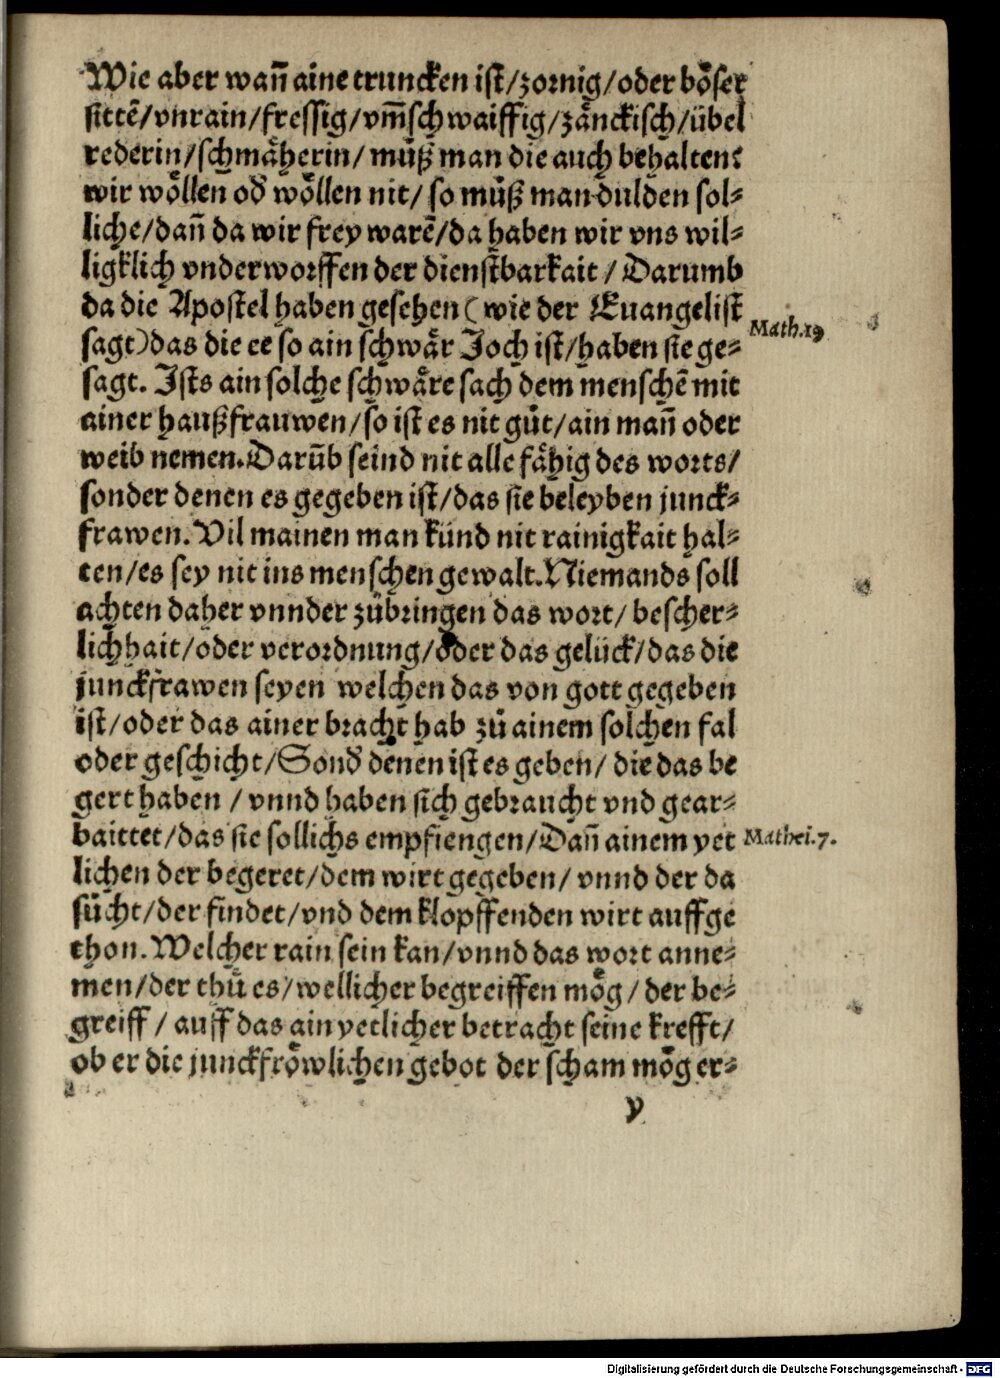 Wie aber wañ aine truncken ist/zornig/oder boͤser
sittẽ/vnrain/fressig/vm̃schwaiffig/zaͤnckisch/uͤbel
rederin/schmaͤherin/ muͤß man die auch behalten?
wir woͤllen od̕ woͤllen nit/ so muͤß man dulden sol⸗
liche/dañ da wir frey warẽ/da haben wir vns wil⸗
ligklich vnderworffen der dienstbarkait / Darumb
da die Apostel haben gesehen (wie der Euangelist
sagt)das die ee so ain schwaͤr Joch ist/haben sie ge⸗
Math.19
sagt. Ists ain solche schwaͤre sach dem menschẽ mit
ainer haußfrauwen/so ist es nit guͤt/ain mañ oder
weib nemen.Darũb seind nit alle faͤhig des worts/
sonder denen es gegeben ist/das sie beleyben junck⸗
frawen.Vil mainen man künd nit rainigkait hal⸗
ten/es sey nit ins menschen gewalt.Niemands soll
achten daher vnnder zuͤbringen das wort/ bescher⸗
lichhait/oder verordnung/oder das gelück/das die
junckfrawen seyen welchen das von gott gegeben
ist/oder das ainer bracht hab zuͤ ainem solchen fal
oder geschicht/Sond̕ denen ist es geben/ die das be
gert haben / vnnd haben sich gebraucht vnd gear⸗
baittet/das sie sollichs empfiengen/Dañ ainem yet
Mathei.7.
lichen der begeret/dem wirt gegeben/ vnnd der da
suͤcht/der findet/vnd dem klopffenden wirt auffge
thon.Welcher rain sein kan/vnnd das wort anne⸗
men/der thuͤ es/wellicher begreiffen moͤg/ der be⸗
greiff / auff das ain yetlicher betracht seine krefft/
ob er die junckfroͤwlichen gebot der scham moͤg er⸗
y
Digitalisierung gefördert durch die Deutsche Forschungsgemeinschaft - DFG